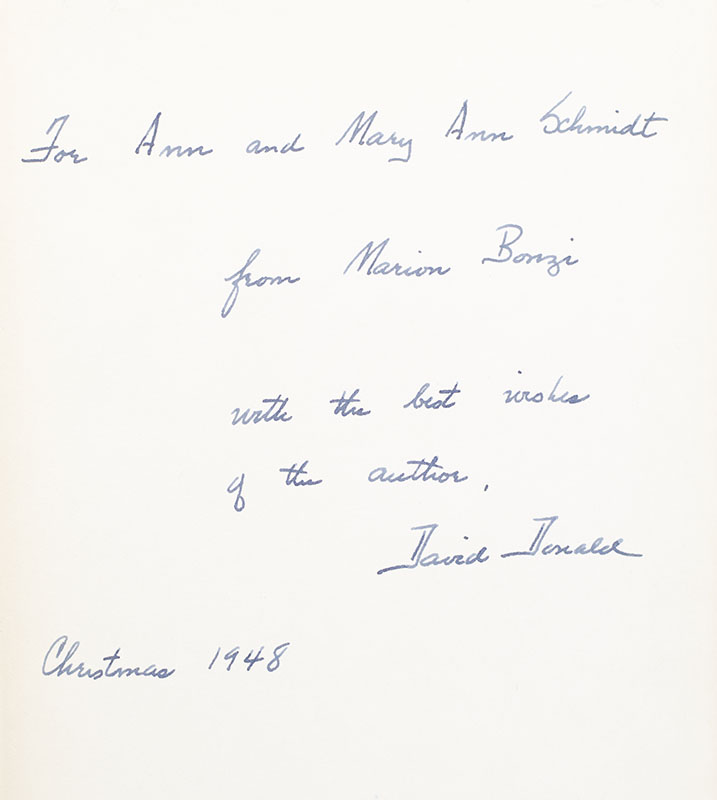 For Ann and Mary Ann Schmidt
from Marion Bonzi
with the best wishes
of the author,
David Donald
Christmas 1948